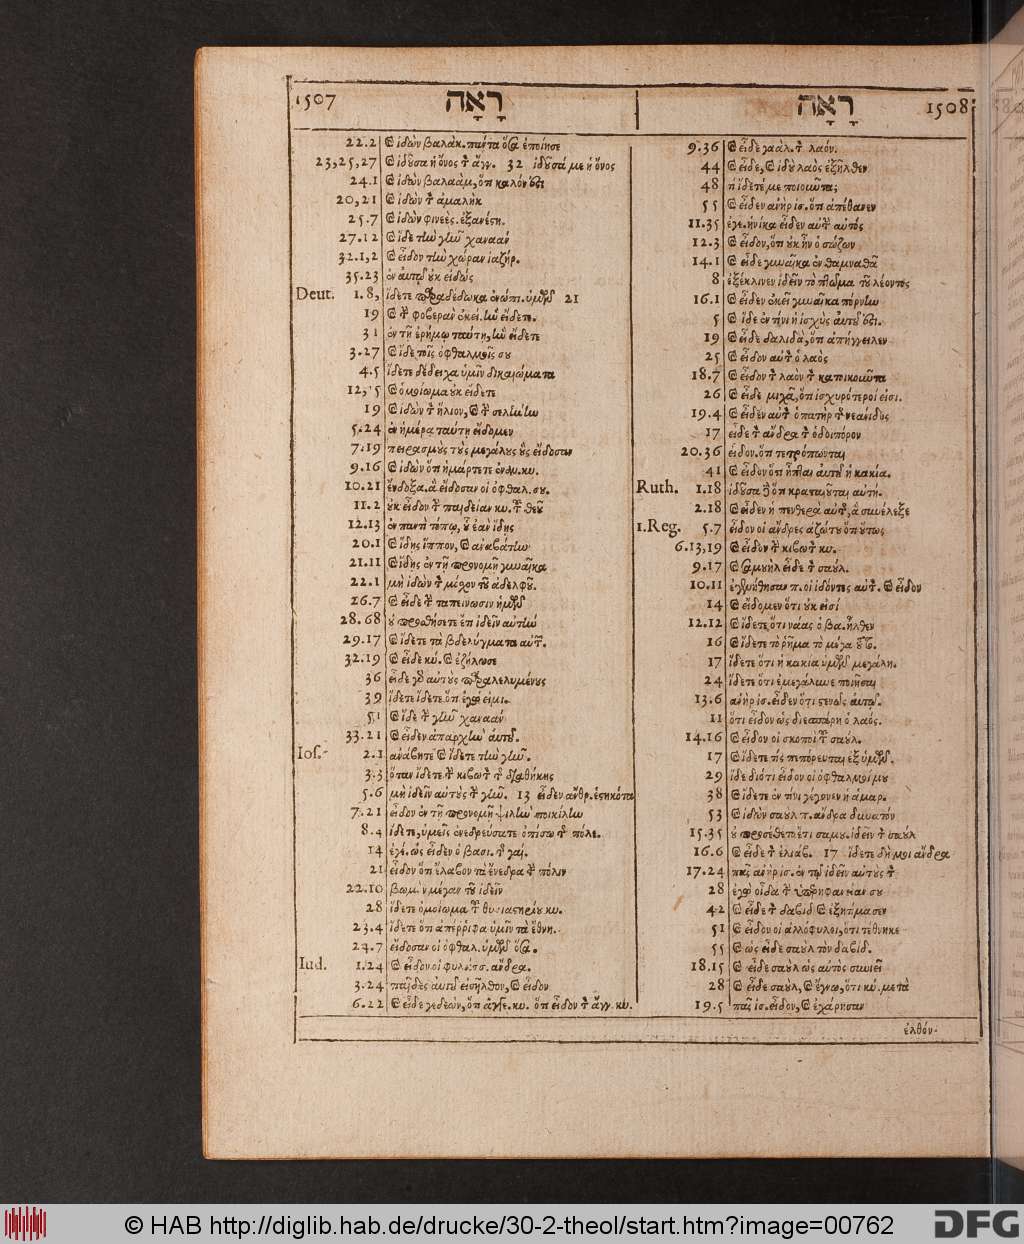 1507 רָאָה
22.2 ϗ ἰδὼν βαλὰκ. πάντα ὅσα ἐποίησε
23,25,27 ϗ ἰδοῦσα ἡ ὄνος τ ἄγγ. 32 ἰδοῦσά με ἡ ὄνος
24.1 ϗ ἰδὼν βαλαὰμ, ὅτι καλόν ἐστι
20,21 ϗ ἰδὼν τ ἀμαλὴκ
25.7 ϗ ἰδὼν φινεὲς. ἐξανέστη.
27.12 ϗ ἴδε τὴν γῆν χαναὰν
32.1,2 ϗ εἶδον τὴν χώραν ἰαζήρ.
35.23 ἐν αὐτῷ οὐκ εἰδὼς
Deut. 1.8, ἴδετε παραδέδωκα ἐνώπι. ὑμῶν 21
19 ϗ τ φοβερὰν ἐκεί. ἣν εἴδετε.
31 ἐν τῇ ἐρήμῳ ταύτῃ, ἣν εἴδετε
3.27 ϗ ἴδε τοῖς ὀφθαλμοῖς σου
4.5 ἴδετε δέδειχα ὑμῖν δικαιώματα
12,15 ϗ ὁμοίωμα οὐκ εἴδετε
19 ϗ ἰδὼν τ ἥλιον, ϗ τ σελήνην
5.24 ἐν ἡμέρᾳ ταύτῃ εἴδομεν
7.19 πειρασμοὺς τοὺς μεγάλους οὓς εἴδοσαν
9.16 ϗ ἰδὼν ὅτι ἡμάρτετε ἐναν. κυ.
10.21 ἔνδοξα. ἃ εἴδοσαν οἱ ὀφθαλ. σου.
11.2 οὐκ εἶδον τ παιδείαν κυ. τ θεοῦ
12.13 ἐν παντὶ τόπῳ, οὗ ἐὰν ἴδῃς
20.1 ϗ ἴδῃς ἵππον, ϗ ἀναβάτην
21.11 ϗ ἴδῃς ἐν τῇ προνομῇ γυναῖκα
22.1 μὴ ἰδὼν τ μόχον τοῦ ἀδελφοῦ.
26.7 ϗ εἶδε τ ταπεινωσιν ἡμῶν
28.68 οὐ προσθήσετε ἔτι ἰδεῖν αὐτὴν
29.17 ϗ ἴδετε τὰ βδελύγματα αὐτῶν.
32.19 ϗ εἶδε κύ. ϗ ἐζήλωσε
36 εἶδε γὰρ αὐτοὺς παραλελυμένους
39 ἴδετε ἴδετε ὅτι ἐγώ εἰμι.
51 ϗ ἴδε τ γῆν χαναὰν
33.21 ϗ εἶδεν ἀπαρχὴν αὐτοῦ.
Ios. 2.1 ἀνάβητε ϗ ἴδετε τὴν γῆν.
3.3 ὅταν ἴδετε τ κιβωτ τ διαθήκης
5.6 μὴ ἰδεῖν αὐτοὺς τ γῆν. 13 εἶδεν ἄνθρ. ἑστηκότα
7.21 εἶδον ἐν τῇ προνομῇ ψιλὴν ποικίλην
8.4 ἴδετε, ὑμεῖς ἐνεδρεύσατε ὀπίσω τ πόλε.
14 ἐγέ. ὡς εἶδεν ὁ βασι. τ γαί.
21 εἶδον ὅτι ἔλαβον τὰ ἔνεδρα τ πόλιν
22.10 βωμὸν μέγαν τοῦ ἰδεῖν
28 ἴδετε ὁμοίωμα τ θυσιαστηρίου κυ.
23.4 ἴδετε ὅτι ἀπέρριφα ὑμῖν τὰ ἔθνη.
24.7 εἴδοσαν οἱ ὀφθαλ. ὑμῶν ὅσα.
Iud. 1.24 ϗ εἶδον οἱ φυλάσσ. ἄνδρα.
3.24 παῖδες αὐτοῦ εἰσῆλθον, ϗ εἶδον
6.22 ϗ εἶδε γεδεὼν, ὅτι ἄγγε. κυ. ὅτι εἶδον τ ἄγγ. κυ.
רָאָה 1508
9.36 ϗ εἶδε γαὰλ. τ λαόν.
44 ϗ εἶδε, ϗ ἰδοὺ λαὸς ἐξῆλθεν
48 τί ἴδετέ με ποιοῦντα;
55 ϗ εἶδεν ἀνὴρ ἰσ. ὅτι ἀπέθανεν
11.35 ἐγε. ἡνίκα εἶδεν αὐτ αὐτὸς
12.3 ϗ εἶδον, ὅτι οὐκ ἦν ὁ σώζων
14.1 ϗ εἶδε γυναῖκα ἐν θαμναθᾶ
8 ἐξέκλινεν ἰδεῖν τὸ πτῶμα τοῦ λέοντος
16.1 ϗ εἶδεν ἐκεῖ γυναῖκα πόρνην
5 ϗ ἴδε ἐν τίνι ἡ ἰσχὺς αὐτοῦ ἐστι.
19 ϗ εἶδε δαλιδὰ, ὅτι ἀπήγγειλεν
25 ϗ εἶδον αὐτ ὁ λαὸς
18.7 ϗ εἶδον τ λαὸν τ κατοικοῦντα
26 ϗ εἶδε μιχᾶ, ὅτι ἰσχυρότεροί εἰσι.
19.4 ϗ εἶδεν αὐτ ὁ πατὴρ τ νεάνιδος
17 εἶδε τ ἄνδρα τ ὁδοιπόρον
20.36 εἶδον. ὅτι τετρόπωνται
41 ϗ εἶδον ὅτι ἧπται αὐτοῦ ἡ κακία.
Ruth. 1.18 ἰδοῦσα δὲ ὅτι κραταιοῦται αὐτή.
2.18 ϗ εἶδεν ἡ πενθερὰ αὐτ, ἃ συνέλεξε
1.Reg. 5.7 εἶδον οἱ ἄνδρες ἀζώτου ὅτι οὕτως
6.13,19 ϗ εἶδον τ κιβωτ κυ.
9.17 ϗ σαμουὴλ εἶδε τ σαούλ.
10.11 ἐγενήθησαν π. οἱ ἰδόντες αὐτ. ϗ εἶδον
14 ϗ εἴδομεν ὅτι οὐκ εἰσί
12.12 ϗ ἴδετε, ὅτι νάας ὁ βα. ἦλθεν
16 ϗ ἴδετε τὸ ῥῆμα τὸ μέγα τοῦτο.
17 ἴδετε ὅτι ἡ κακία ὑμῶν μεγάλη.
24 ἴδετε ὅτι ἐμεγάλυνε ποιῆσαι
13.6 ἀνὴρ ἰσ. εἶδεν ὅτι στενῶς αὐτῷ.
11 ὅτι εἶδον ὡς διεσπάρη ὁ λαός.
14.16 ϗ εἶδον οἱ σκοποὶ τ σαούλ.
17 ϗ ἴδετε τίς πεπόρευται ἐξ ὑμῶν.
29 ἴδε διότι εἶδον οἱ ὀφθαλμοί μου
38 ϗ ἴδετε ἐν τίνι γέγονεν ἡ ἁμαρ.
53 ϗ ἰδὼν σαοὺλ π. ἄνδρα δυνατόν
15.35 οὐ προσέθετο ἔτι σαμου. ἰδεῖν τ σαοὺλ
16.6 ϗ εἶδε τ ἐλιάβ. 17 ἴδετε δή μοι ἄνδρα
17.24 πᾶς ἀνὴρ ἰσ. ἐν τῷ ἰδεῖν αὐτοὺς τ
28 ἐγὼ οἶδα τ ὑπερηφανίαν σου
42 ϗ εἶδε τ δαβὶδ ϗ ἐξητίμασεν
51 ϗ εἶδον οἱ ἀλλόφυλοι, ὅτι τέθνηκε
55 ϗ ὡς εἶδε σαοὺλ τὸν δαβίδ.
18.15 ϗ εἶδε σαοὺλ ὡς αὐτὸς συνιεῖ
28 ϗ εἶδε σαοὺλ, ϗ ἔγνω, ὅτι κύ. μετὰ
19.5 πᾶς ἰσ. εἶδον, ϗ ἐχάρησαν
ἐλθόν.
© HAB http://diglib.hab.de/drucke/30-2-theol/start.htm?image=00762
DFG